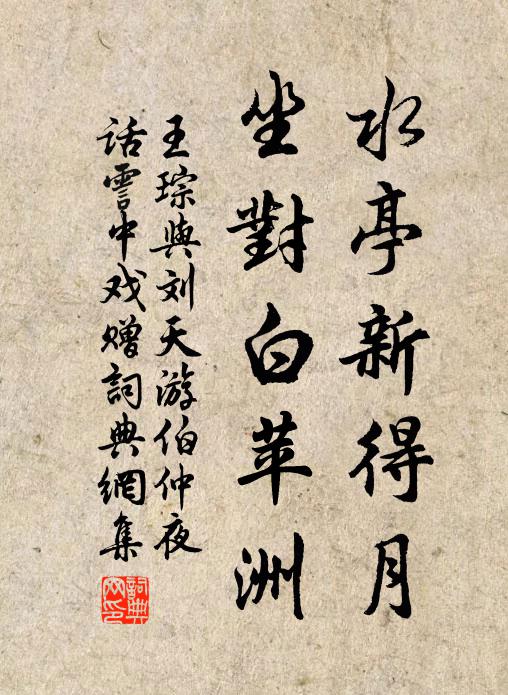 水亭新得月
坐對白苹洲
王琮與刘天游伯仲夜
话雪中戏赠詞典網集
詞典